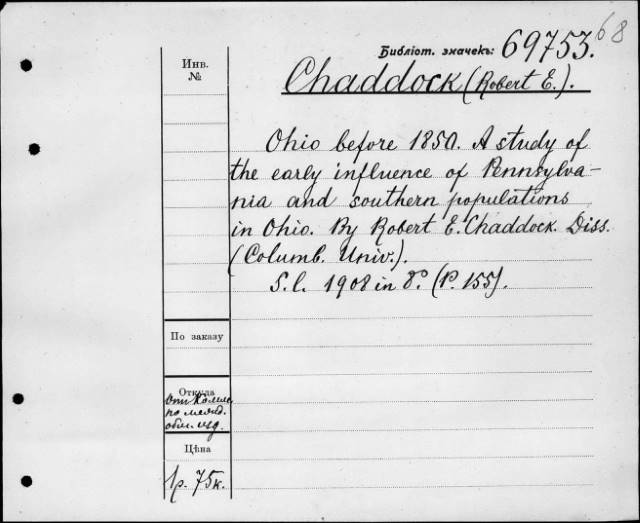 68
Библіот. значекъ: 69753.
Инв.
№
Chaddock (Robert E.).
Ohio before 1850. A study of
the early influence of Pennsylva-
nia and southern populations
in Ohio. By Robert E. Chaddock. Diss.
(Columb. Univ.).
S. l. 1908 in 8°. (P. 155).
По заказу
Откуда
отъ Комис.
по межд.
обм. изд.
Цѣна
1р. 75к.